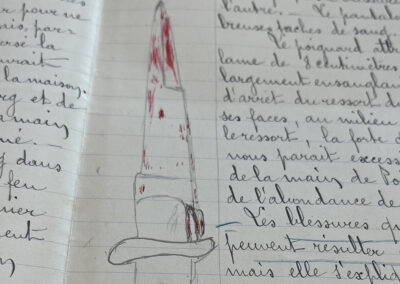 pour ne
is, par-
erse la
uvrait
la maison.
rg et de
main
mé. —
dans
feu
nier
ment
l'autre. — Le pantalo
breuses taches de sang.
Le poignard attr
lame de 8 centimètres
largement ensanglan
d'arrêt du ressort de
ses faces, au milieu
le ressort, la forte
nous parait excess
de la main de Po
de l'abondance de
Les blessures qu
peuvent résulter
mais elle s'expliq